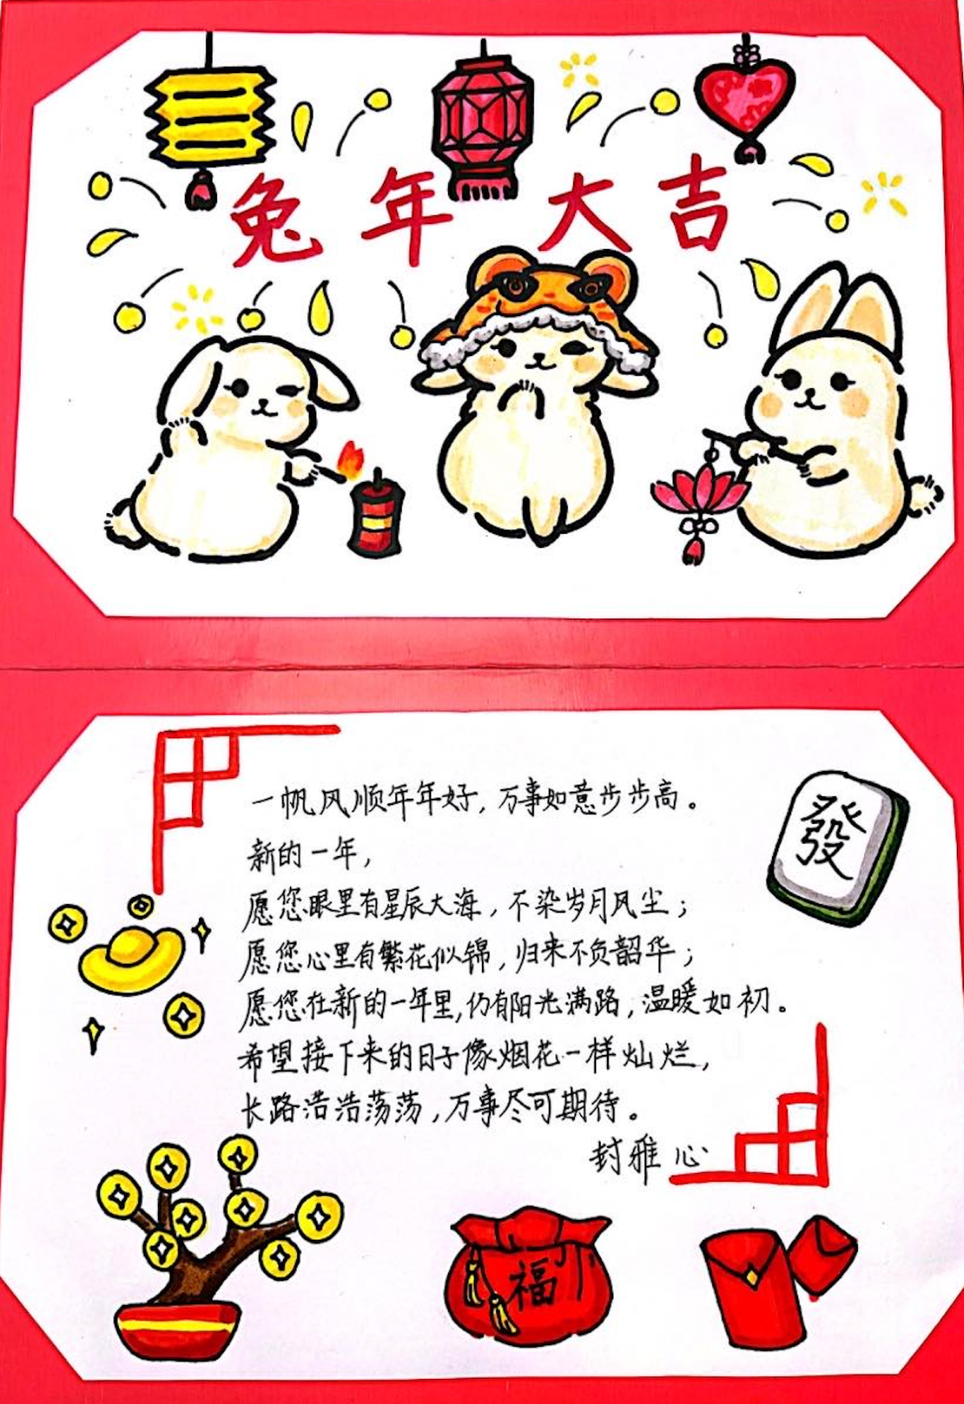 兔年大吉
一帆风顺年年好，万事如意步步高。
發
新的一年，
愿您眼里有星辰大海，不染岁月风尘；
愿您心里有繁花似锦，归来不负韶华；
愿您在新的一年里，仍有阳光满路，温暖如初。
希望接下来的日子像烟花一样灿烂，
长路浩浩荡荡，万事尽可期待。
封雅心
福